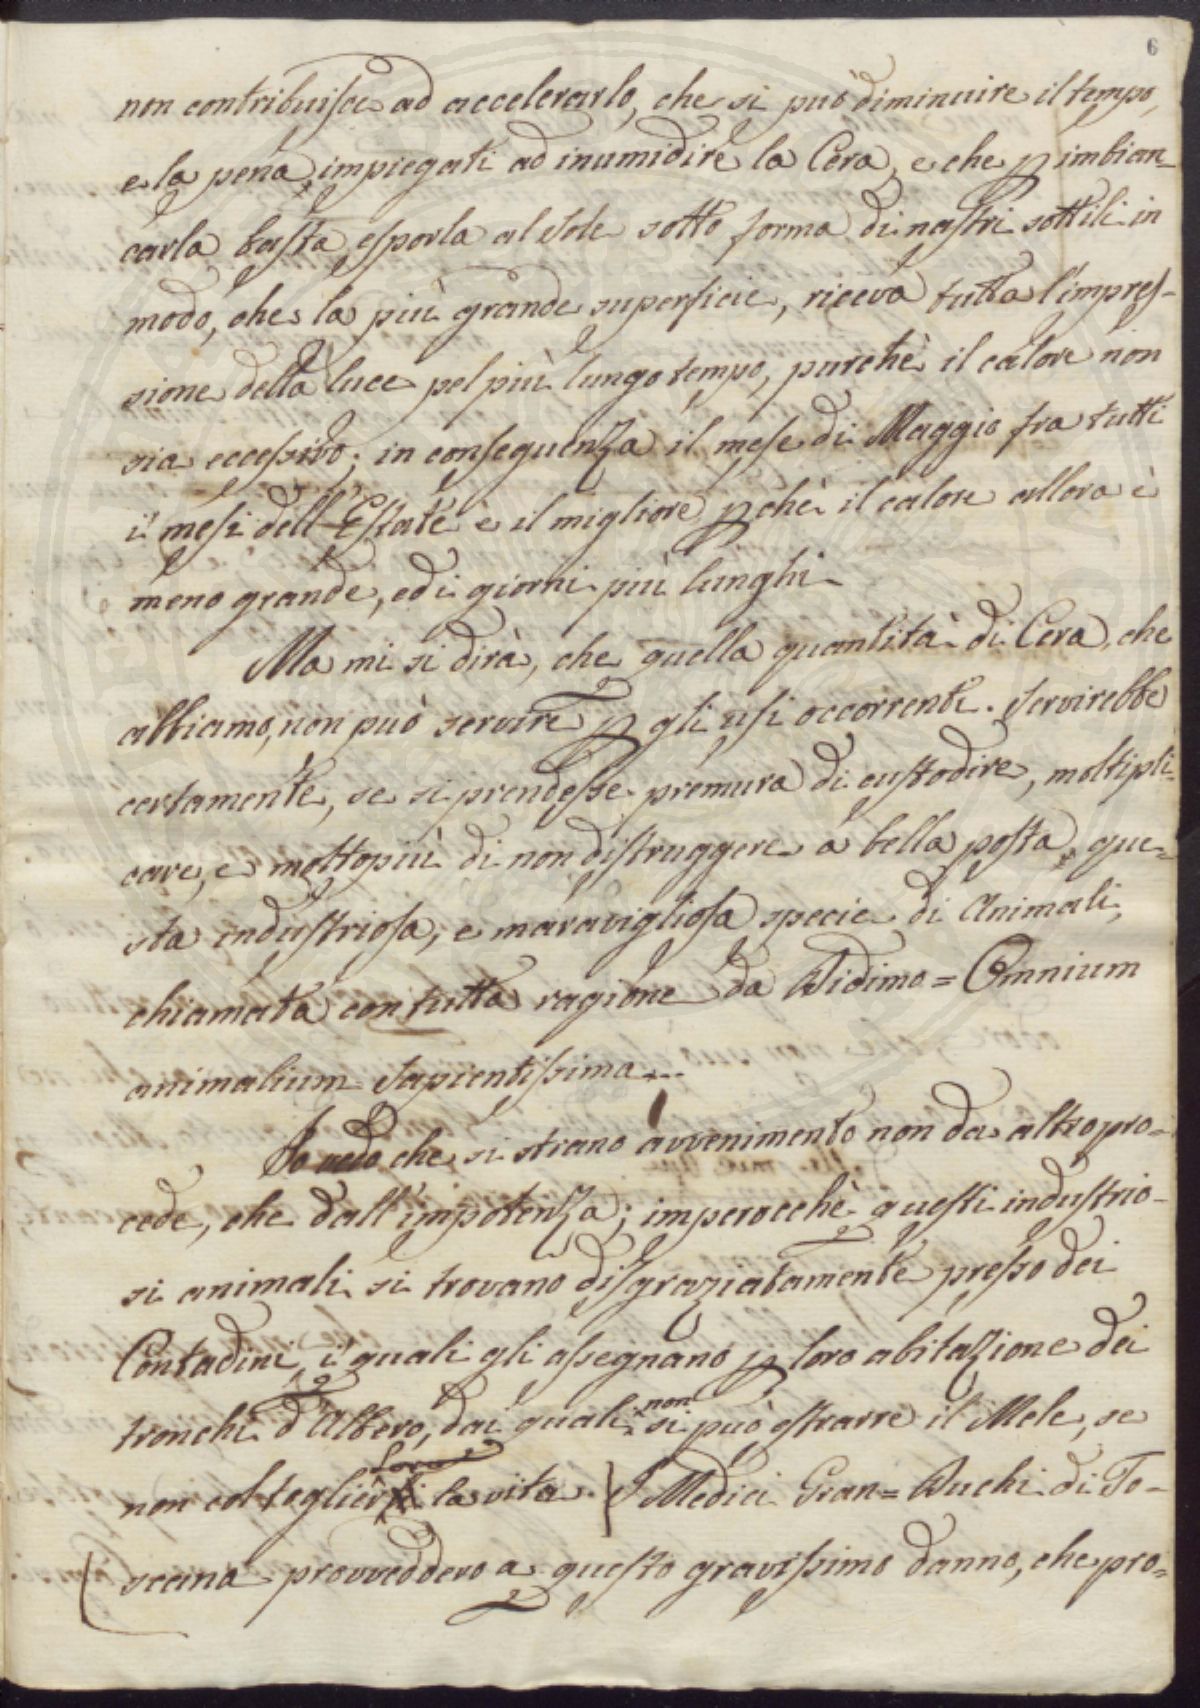 6
non contribuisce ad accelerarlo, che si può diminuire il tempo,
e la pena impiegati ad inumidire la Cera, e che p imbian-
carla basta esporla al Sole sotto forma di nastri sottili in
modo, che la più grande superficie, riceva tutta l'impres-
sione della luce pel più lungo tempo, purchè il calore non
sia eccessivo; in conseguenza il mese di Maggio fra tutti
i mesi dell'Estate è il migliore pchè il calore allora è
meno grande, ed i giorni più lunghi.
Ma mi si dirà, che quella quantità di Cera, che
abbiamo, non può servire p gli usi occorrenti. Servirebbe
certamente, se si prendesse premura di custodire, moltipli-
care, e moltopiù di non distruggere a bella posta que=
sta industriosa, e maravigliosa specie di Animali,
chiamata con tutta ragione da Didimo = Omnium
animalium Sapientissima...
Io vedo che si strano avvenimento non da altro pro=
cede, che dall'impotenza; imperocchè questi industrio-
si animali si trovano disgraziatamente presso dei
Contadini, i quali gli assegnano p loro abitazione dei
tronchi d'Albero, dai quali non si può estrarre il Mele, se
non col toglier Loro la vita. I Medici Gran=Duchi di To-
scana provveddero a questo gravissimo danno, che pro=